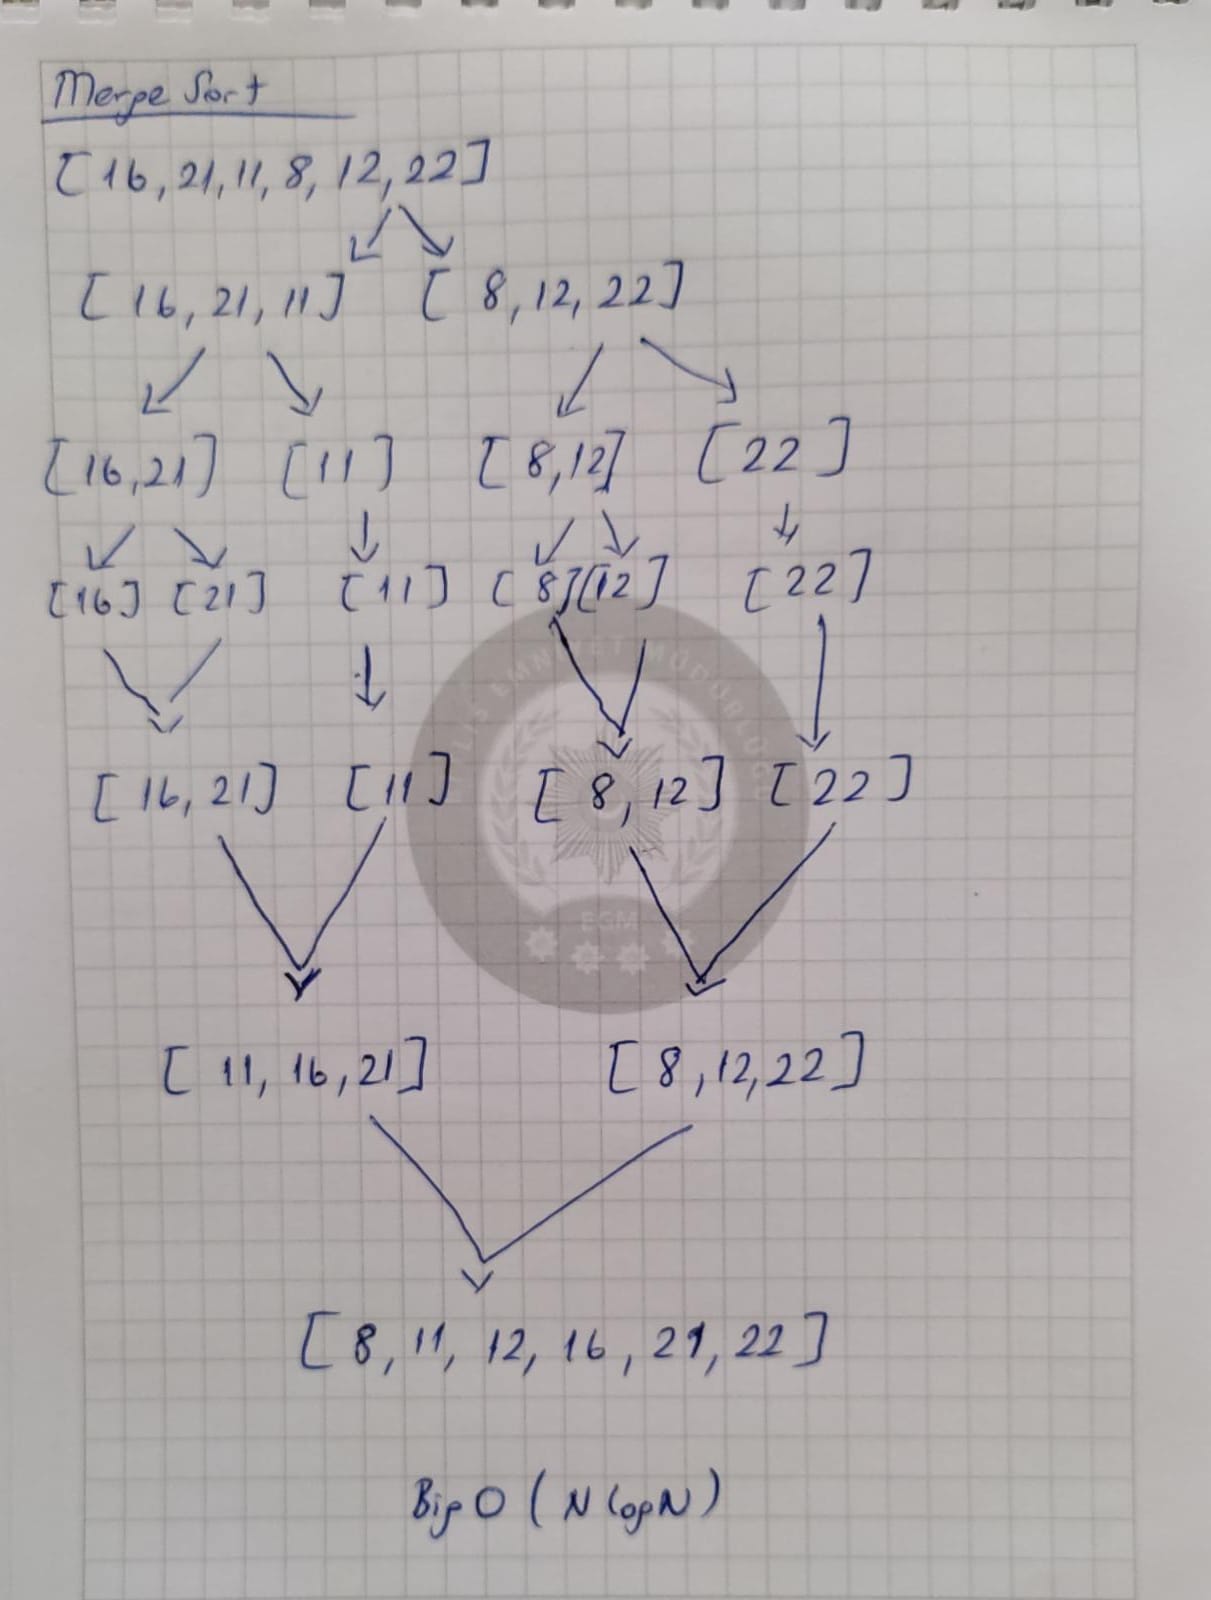 Merge Sort
[16, 21, 11, 8, 12, 22]
[16, 21, 11] [8, 12, 22]
[16, 21] [11] [8, 12] [22]
[16] [21] [11] [8] [12] [22]
[16, 21] [11] [8, 12] [22]
EGM
[11, 16, 21] [8, 12, 22]
[8, 11, 12, 16, 21, 22]
Big O (N log N)